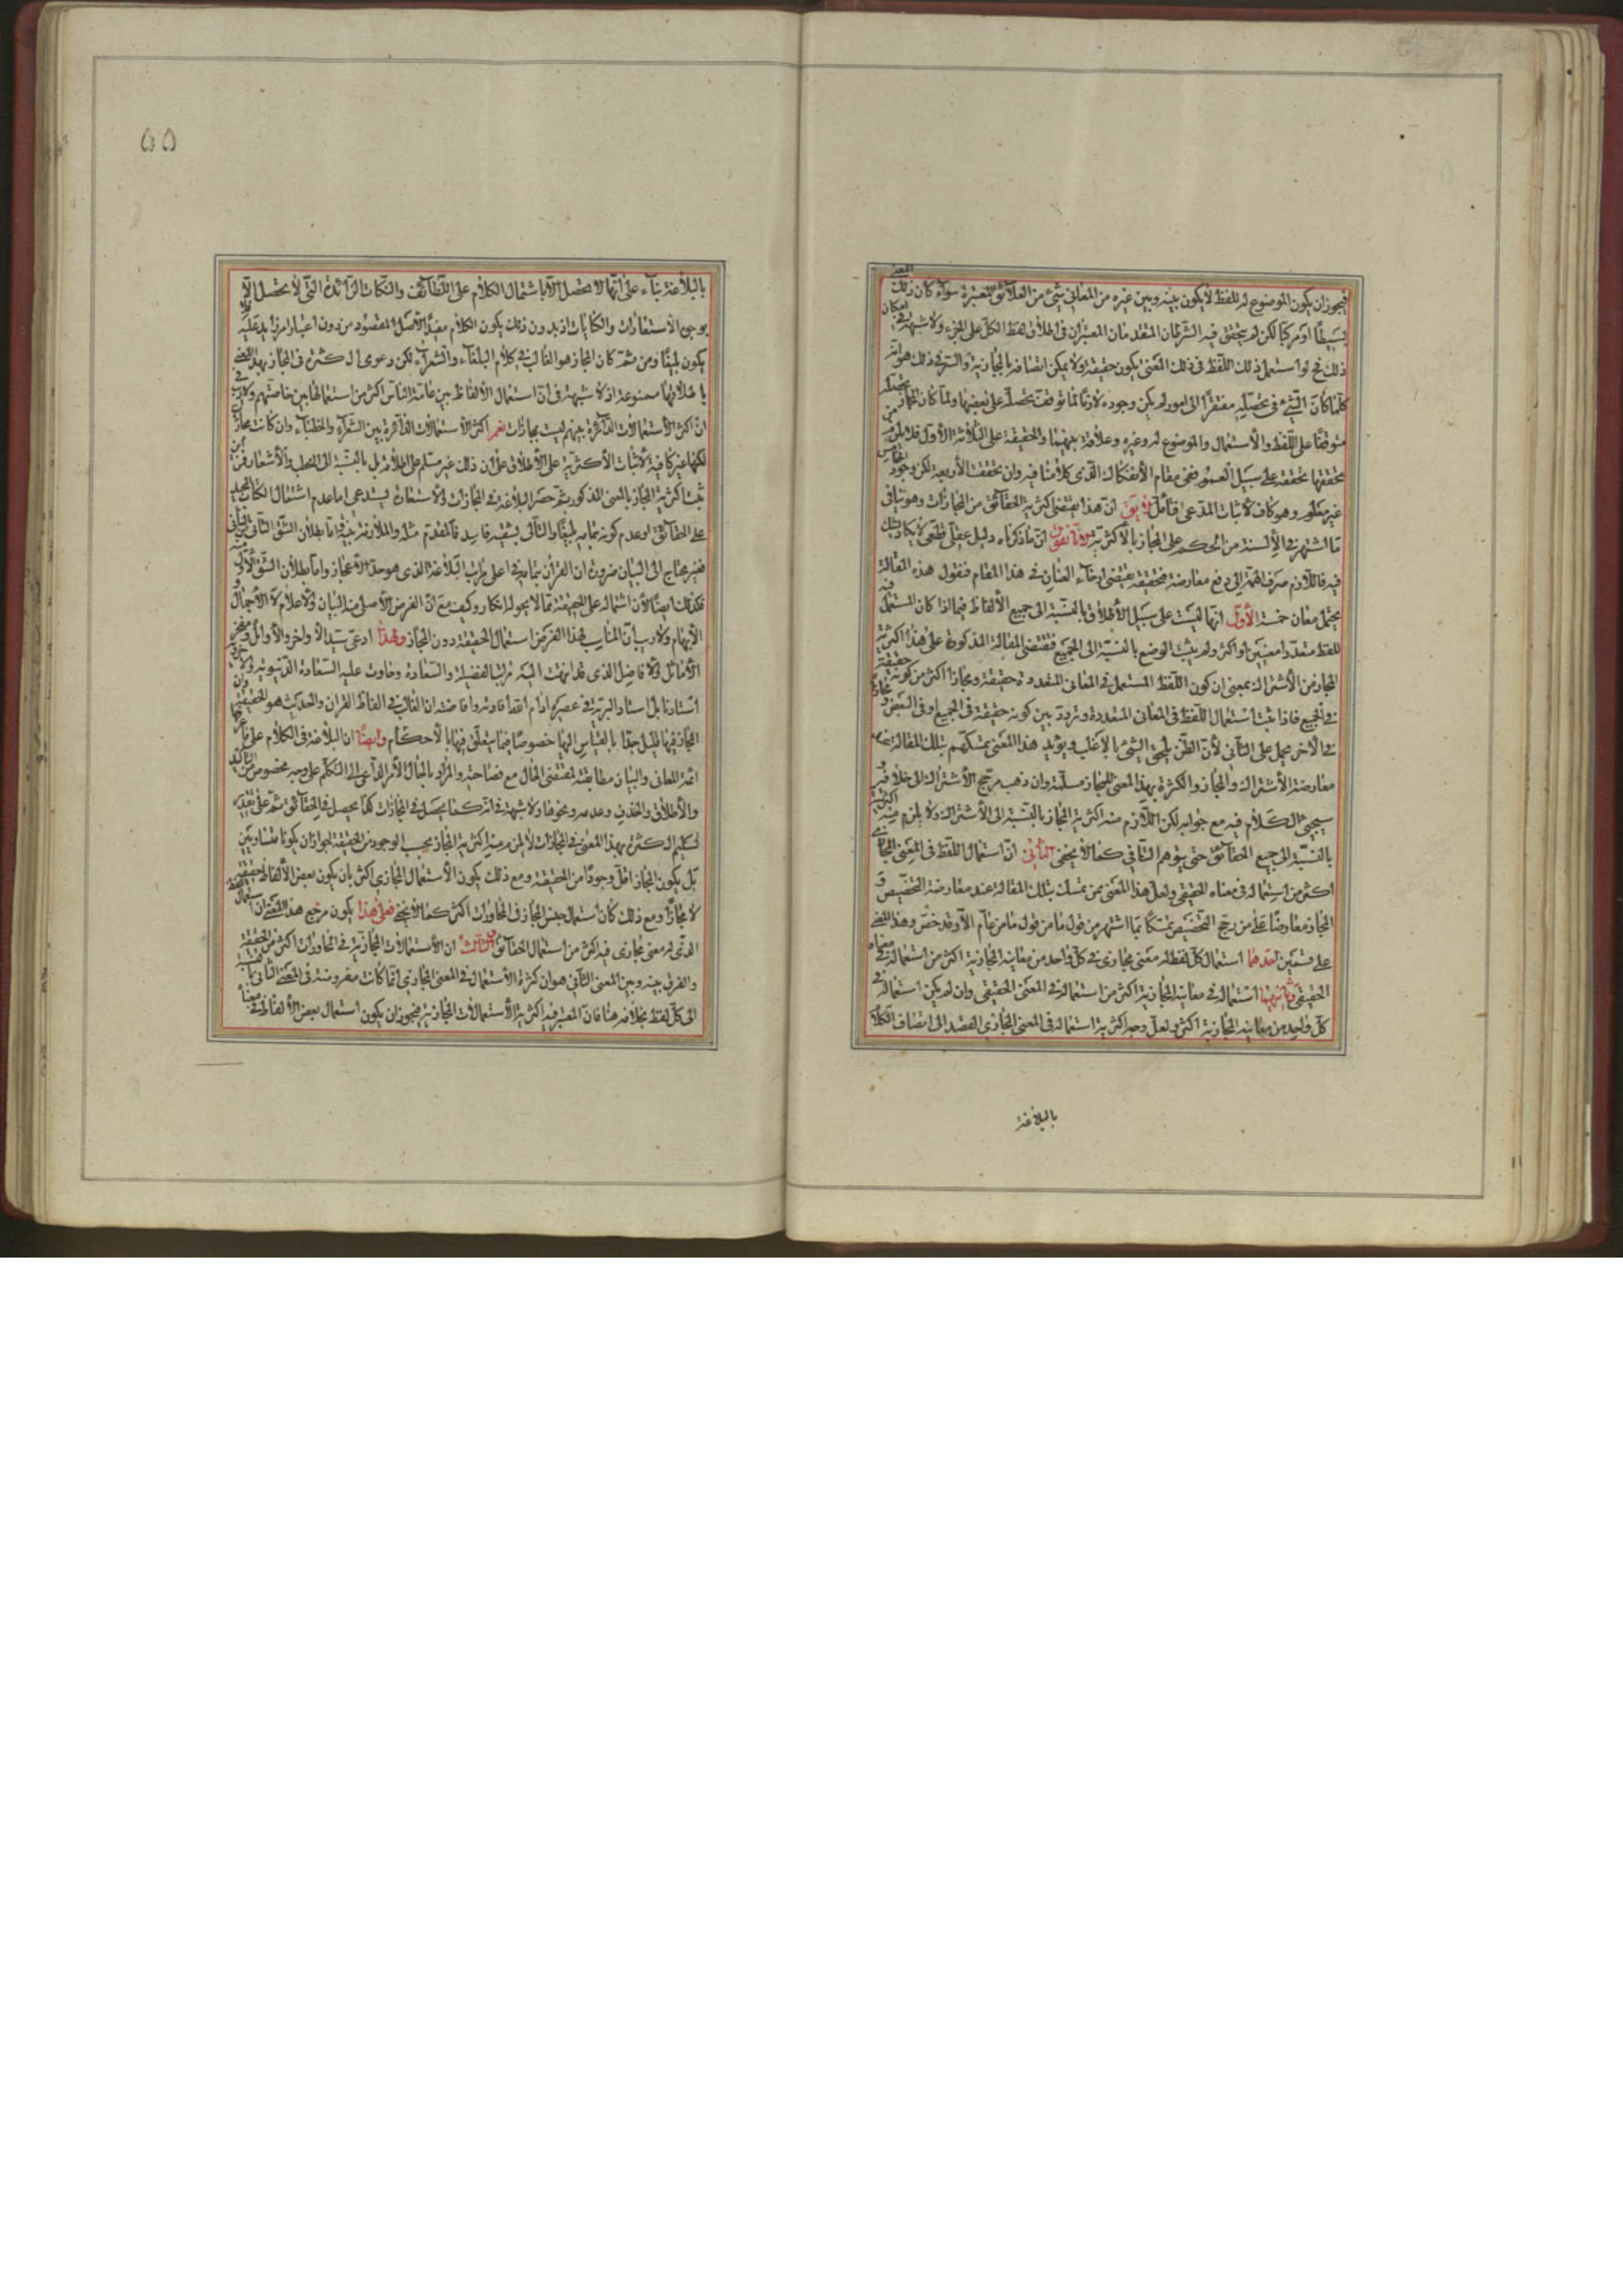 فيجوز ان يكون الموضوع له للفظ لا يكون بينه وبين غيره من المعانى شئ من العلائق المعتبرة سواء كان ذلك المعنى
بسيطًا او مركبًا لكن لم يتحقق فيه الشرطان المتقدمان المعتبران فى اطلاق لفظ الكل على الجزء ولا شبهة فى امكان
ذلك فح لو استعمل ذلك اللفظ فى ذلك المعنى يكون حقيقة ولا يمكن اتصافه بالمجازية والسر فى ذلك هو انه
كلما كان الشئ فى تحصله مفتقرًا الى امور لم يكن وجوده لازمًا لما توقف تحصله على بعضها ولما كان المجاز
متوقفًا على اللفظ والاستعمال والموضوع له وغيره وعلاقة بينهما والحقيقة على الثلاثة الاول فلا يلزم من
تحققها تحققه على سبيل العموم ففى مقام الانفكاك الذى كلامنا فيه وان تحققت الاربعة لكن وجود الخامس
غير معلوم وهو كاف لاثبات المدعى فتأمل لا يق ان هذا يقتضى اكثرية الحقائق من المجازات وهو ينافى
ما اشتهر فى الالسنة من الحكم على المجاز بالاكثرية لانا نقول ان ما ذكرناه دليل عقلى قطعى لا يكاد يشك
فيه فاللازم صرف الهمة الى دفع معارضه فتحقيقه يقتضى ارخاء العنان فى هذا المقام فنقول هذه المقالة
يحتمل معان خمسة الأول انها ليست على سبيل الاطلاق بالنسبة الى جميع الالفاظ فيما اذا كان المستعمل فيه
للفظ متعددا معنيين او اكثر ولم يثبت الوضع بالنسبة الى الجميع فمقتضى المقالة المذكورة على هذا اكثرية
المجاز من الاشتراك بمعنى ان كون اللفظ المستعمل فى المعانى المتعددة حقيقة ومجازا اكثر من كونه حقيقة
فى الجميع فاذا ثبت استعمال اللفظ فى المعانى المتعددة وتردد بين كونه حقيقة فى الجميع او فى البعض و مجازًا
فى الآخر يحمل على الثانى لان الظن يلحق الشئ بالاغلب ويؤيد هذا المعنى تمسكهم بتلك المقالة عند
معارضة الاشتراك والمجاز والكثرة بهذا المعنى للمجاز مسلمة وان ذهب مرجح الاشتراك الى خلافه و
سيجئ الكلام فيه مع جوابه لكن اللازم منه اكثرية المجاز بالنسبة الى الاشتراك ولا يلزم منه اكثريته
بالنسبة الى جميع الحقائق حتى يتوهم التنافى كما لا يخفى الثانى ان استعمال اللفظ فى المعنى المجازى
اكثر من استعماله فى معناه الحقيقى ولعل هذا المعنى بمن تمسك بتلك المقالة عند معارضة التخصيص و
المجاز معارضًا على من رجح التخصيص تمسكًا بما اشتهر من قول ما من عام الا وقد خص وهذا المعنى
على قسمين احدهما استعمال كل لفظ له معنى مجازى فى كل واحد من معانيه المجازية اكثر من استعماله فى معناه
الحقيقى وثانيهما استعماله فى معانيه المجازية اكثر من استعماله فى المعنى الحقيقى وان لم يكن استعماله فى
كل واحد من معانيه المجازية اكثر ولعل وجه اكثرية استعماله فى المعنى المجازى القصد الى اتصاف الكلام
بالبلاغة
۵۵
بالبلاغة بناء على انها لا تحصل الا باشتمال الكلام على اللطائف والنكات الزائدة التى لا تحصل الا
بوجوه الاستعارات والكنايات اذ بدون ذلك يكون الكلام مفيدًا لاصل المقصود من دون اعتبار امر زايد عليه فلا
يكون بليغًا ومن ثمة كان المجاز هو الغالب فى كلام البلغاء والشعراء لكن دعوى الكثرة فى المجاز بهذا المعنى
باطلاقها ممنوعة اذ لا شبهة فى ان استعمال الالفاظ بين عامة الناس اكثر من استعمالها بين خاصتهم ولا ريب فى
ان اكثر الاستعمالات الدائرة بينهم ليست بمجازات نعم اكثر الاستعمالات الدائرة بين الشعراء والخطباء وان كانت مجازًا
لكنها غير كافية لاثبات الاكثرية على الاطلاق على ان ذلك غير مسلم على اطلاقه بل بالنسبة الى الخطب والاشعار فمن اين
ثبت اكثرية المجاز بالمعنى المذكور ثم حصر البلاغة فى المجازات والاستعارات يستدعى اما عدم اشتمال الكتاب المجيد
على الحقائق او عدم كونه بتمامه بليغًا والتالى بشقيه فاسد فالمقدم مثله والملازمة بينة اما بطلان الشق الثانى من التالى
فغير محتاج الى البيان ضرورة ان القرآن بتمامه فى اعلى مراتب البلاغة الذى هو حد الاعجاز واما بطلان الشق الاول منه
فكذلك ايضًا لان اشتماله على الحقيقة مما لا يجوز لنا انكاره وكيف مع ان الغرض الاصلى منه البيان والاعلام لا الاجمال و
الابهام ولا ريب ان المناسب لهذا الغرض استعمال الحقيقة دون المجاز ولهذا ادعى سيد الاواخر والاوائل ومفخر
الاماثل والافاضل الذى قد انتهت اليه مراتب الفضيلة والسعادة وحاوت عليه السعادة الدنيوية والاخروية
استادنا بل استاد البرية فى عصره ادام الله افادته وافاضته ان الغالب فى الفاظ القرآن والحديث هو الحقيقة وان
المجاز فيها قليل جدًا بالقياس اليها خصوصًا فيما يتعلق فيها بالاحكام وايضًا ان البلاغة فى الكلام على ما عرفها
ائمة المعانى والبيان مطابقة لمقتضى الحال مع فصاحته والمراد بالحال الامر الداعى الى التكلم على وجه مخصوص من التاكيد
والاطلاق والحذف وعدمه ونحوها ولا شبهة فى انه كما يحصل فى المجازات كذا يحصل فى الحقائق ثم على تقدير
تسليم الكثرة بهذا المعنى فى المجازات لا يلزم منه اكثرية المجاز بحسب الوجود من الحقيقة لجواز ان يكونا متساويين
بل يكون المجاز اقل وجودًا من الحقيقة ومع ذلك يكون الاستعمال المجازى اكثر بان يكون بعض الالفاظ حقيقة
لا مجازًا ومع ذلك كان استعمال جنس المجاز فى المحاورات اكثر كما لا يخفى فعلى هذا يكون مرجع هذا المعنى ان استعمال اللفظ
الذى له معنى مجازى فيه اكثر من استعمال الحقائق الثالث ان الاستعمالات المجازية فى المحاورات اكثر من الحقيقة
والفرق بينه وبين المعنى الثانى هو ان كثرة الاستعمال فى المعنى المجازى انما كانت مفروضة فى المعنى الثانى بالنسبة
الى كل لفظ بخلافه هنا فان المعتبر فيه اكثرية الاستعمالات المجازية فيجوز ان يكون استعمال بعض الالفاظ فى معناه